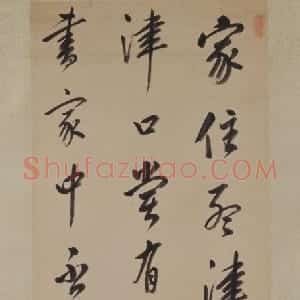 家住孟津
津口常有
書家中否
Shufaziliao.COM